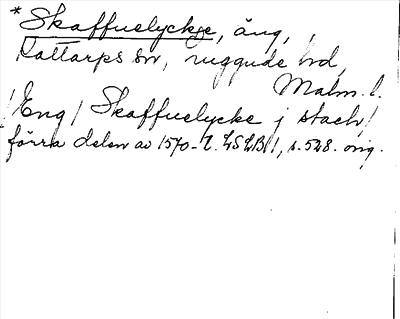 *Skaffuelyckje, äng,
Kattarps sn, Luggude hd,
Malm. l.
/Eng/ Skaffuelycke j stach/
förra delen av 1570-t. LSLB1, s. 528. orig.